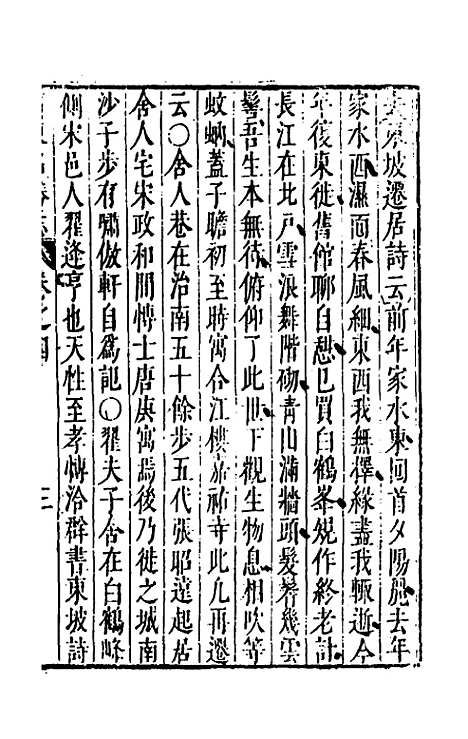 東坡遷居詩云前年家水東回首夕陽麗去年
家水西濕面春風細東西我無擇緣盡我輒逝今
年復東徙舊館聊自憩已買白鶴峯規作終老計
長江在北戶雪浪舞階砌青山滿牆頭髮鬌幾雲
髻吾生本無待俯仰了此世下觀生物息相吹等
蚊蚋蓋子瞻初至時寓合江樓嘉祐寺此凡再遷
云〇舍人巷在治南五十餘步五代張昭遠起居
舍人宅宋政和間博士唐庚寓焉後乃徙之城南
沙子步有嘯傲軒自為記〇翟夫子舍在白鶴峰
側宋邑人翟逢亨也天性至孝博洽群書東坡詩
名勝志
卷之四
三